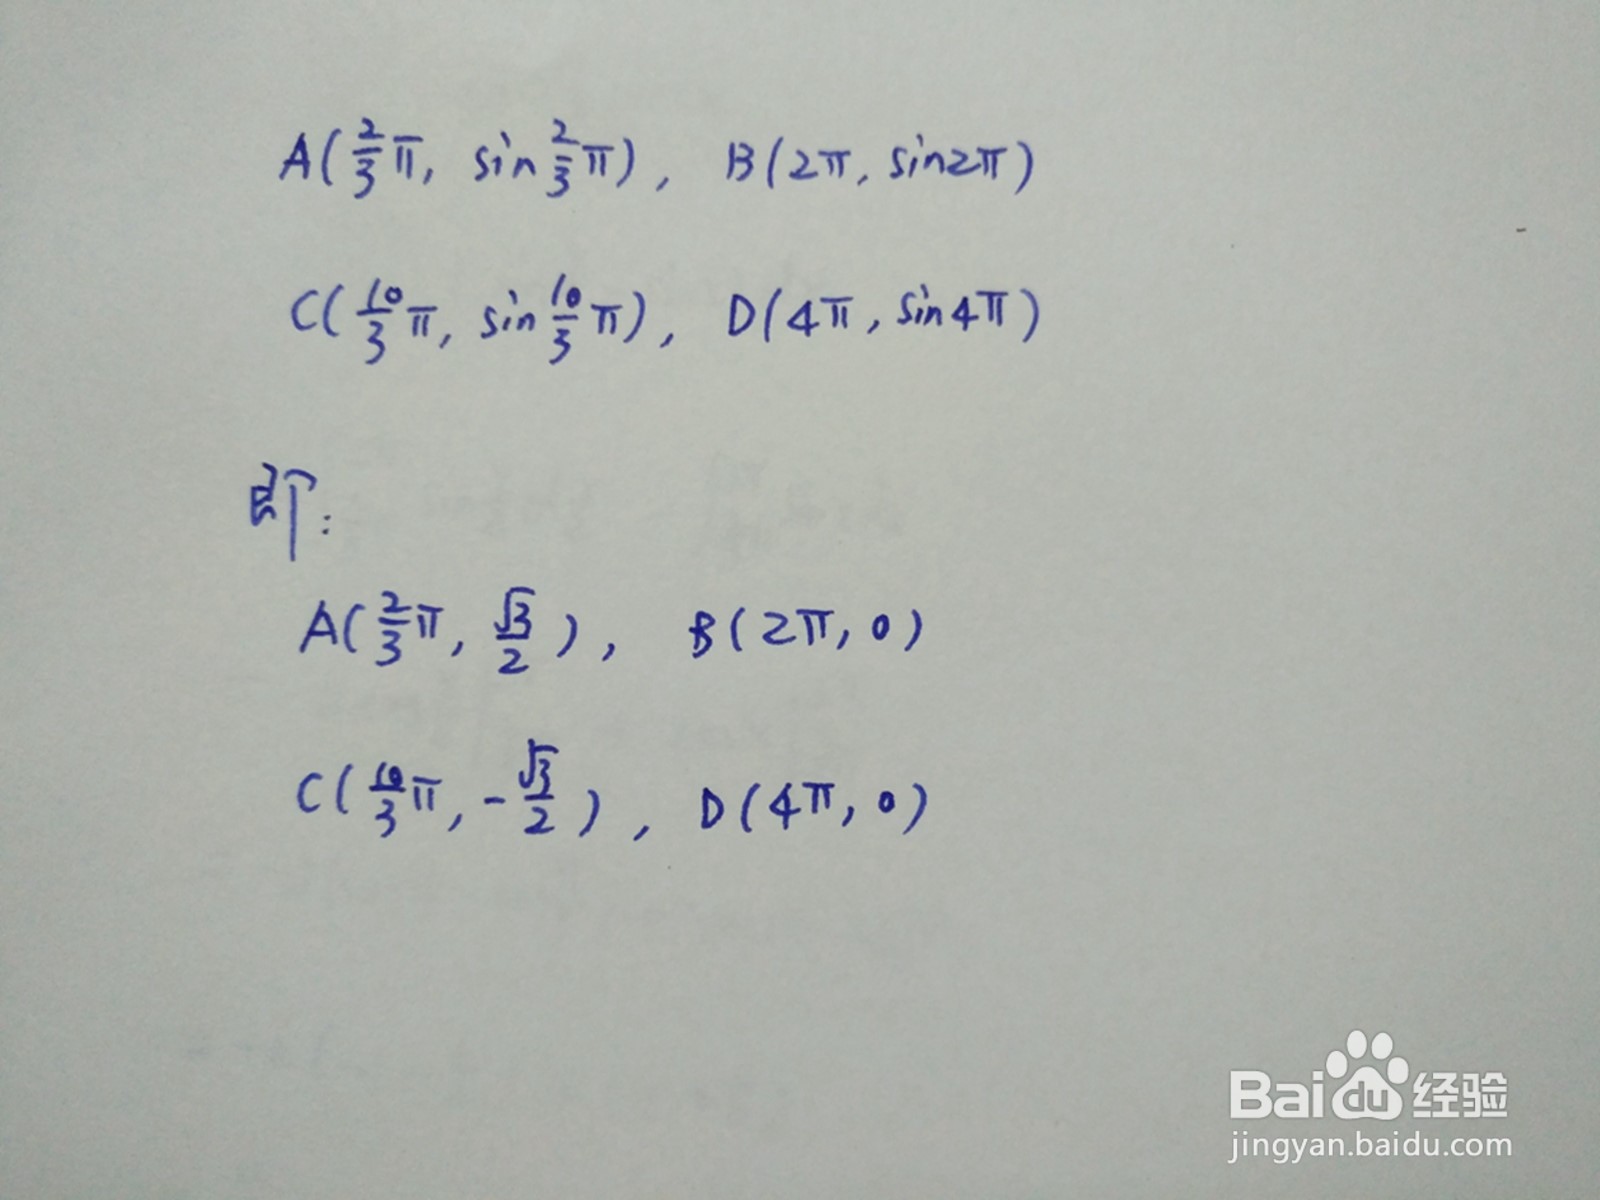 A(2/3 π, sin 2/3 π), B(2π, sin2π)
C(10/3 π, sin 10/3 π), D(4π, sin4π)
即:
A(2/3 π, √3/2), B(2π, 0)
C(10/3 π, -√3/2), D(4π, 0)
Baidu经验
jingyan.baidu.com